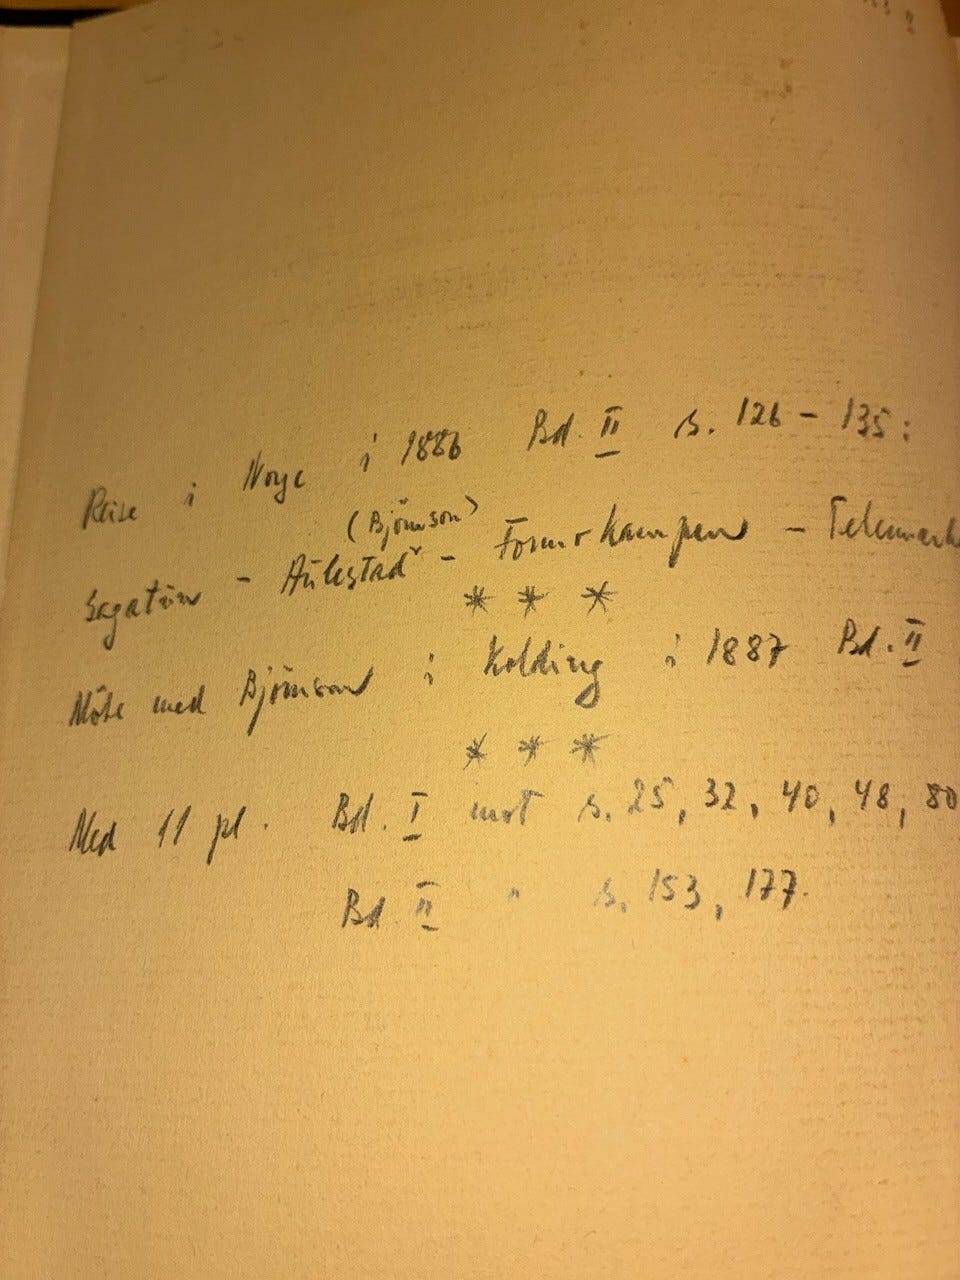 Reise i Norge i 1886 Bd. II s. 126 - 135:
(Björnson)
Sagatun - Aulestad - Formokampen - Telemark
* * *
Möte med Björnson i Kolding i 1887 Bd. II
* * *
Med 11 pl. Bd. I mot s. 25, 32, 40, 48, 80
Bd II " s. 153, 177.